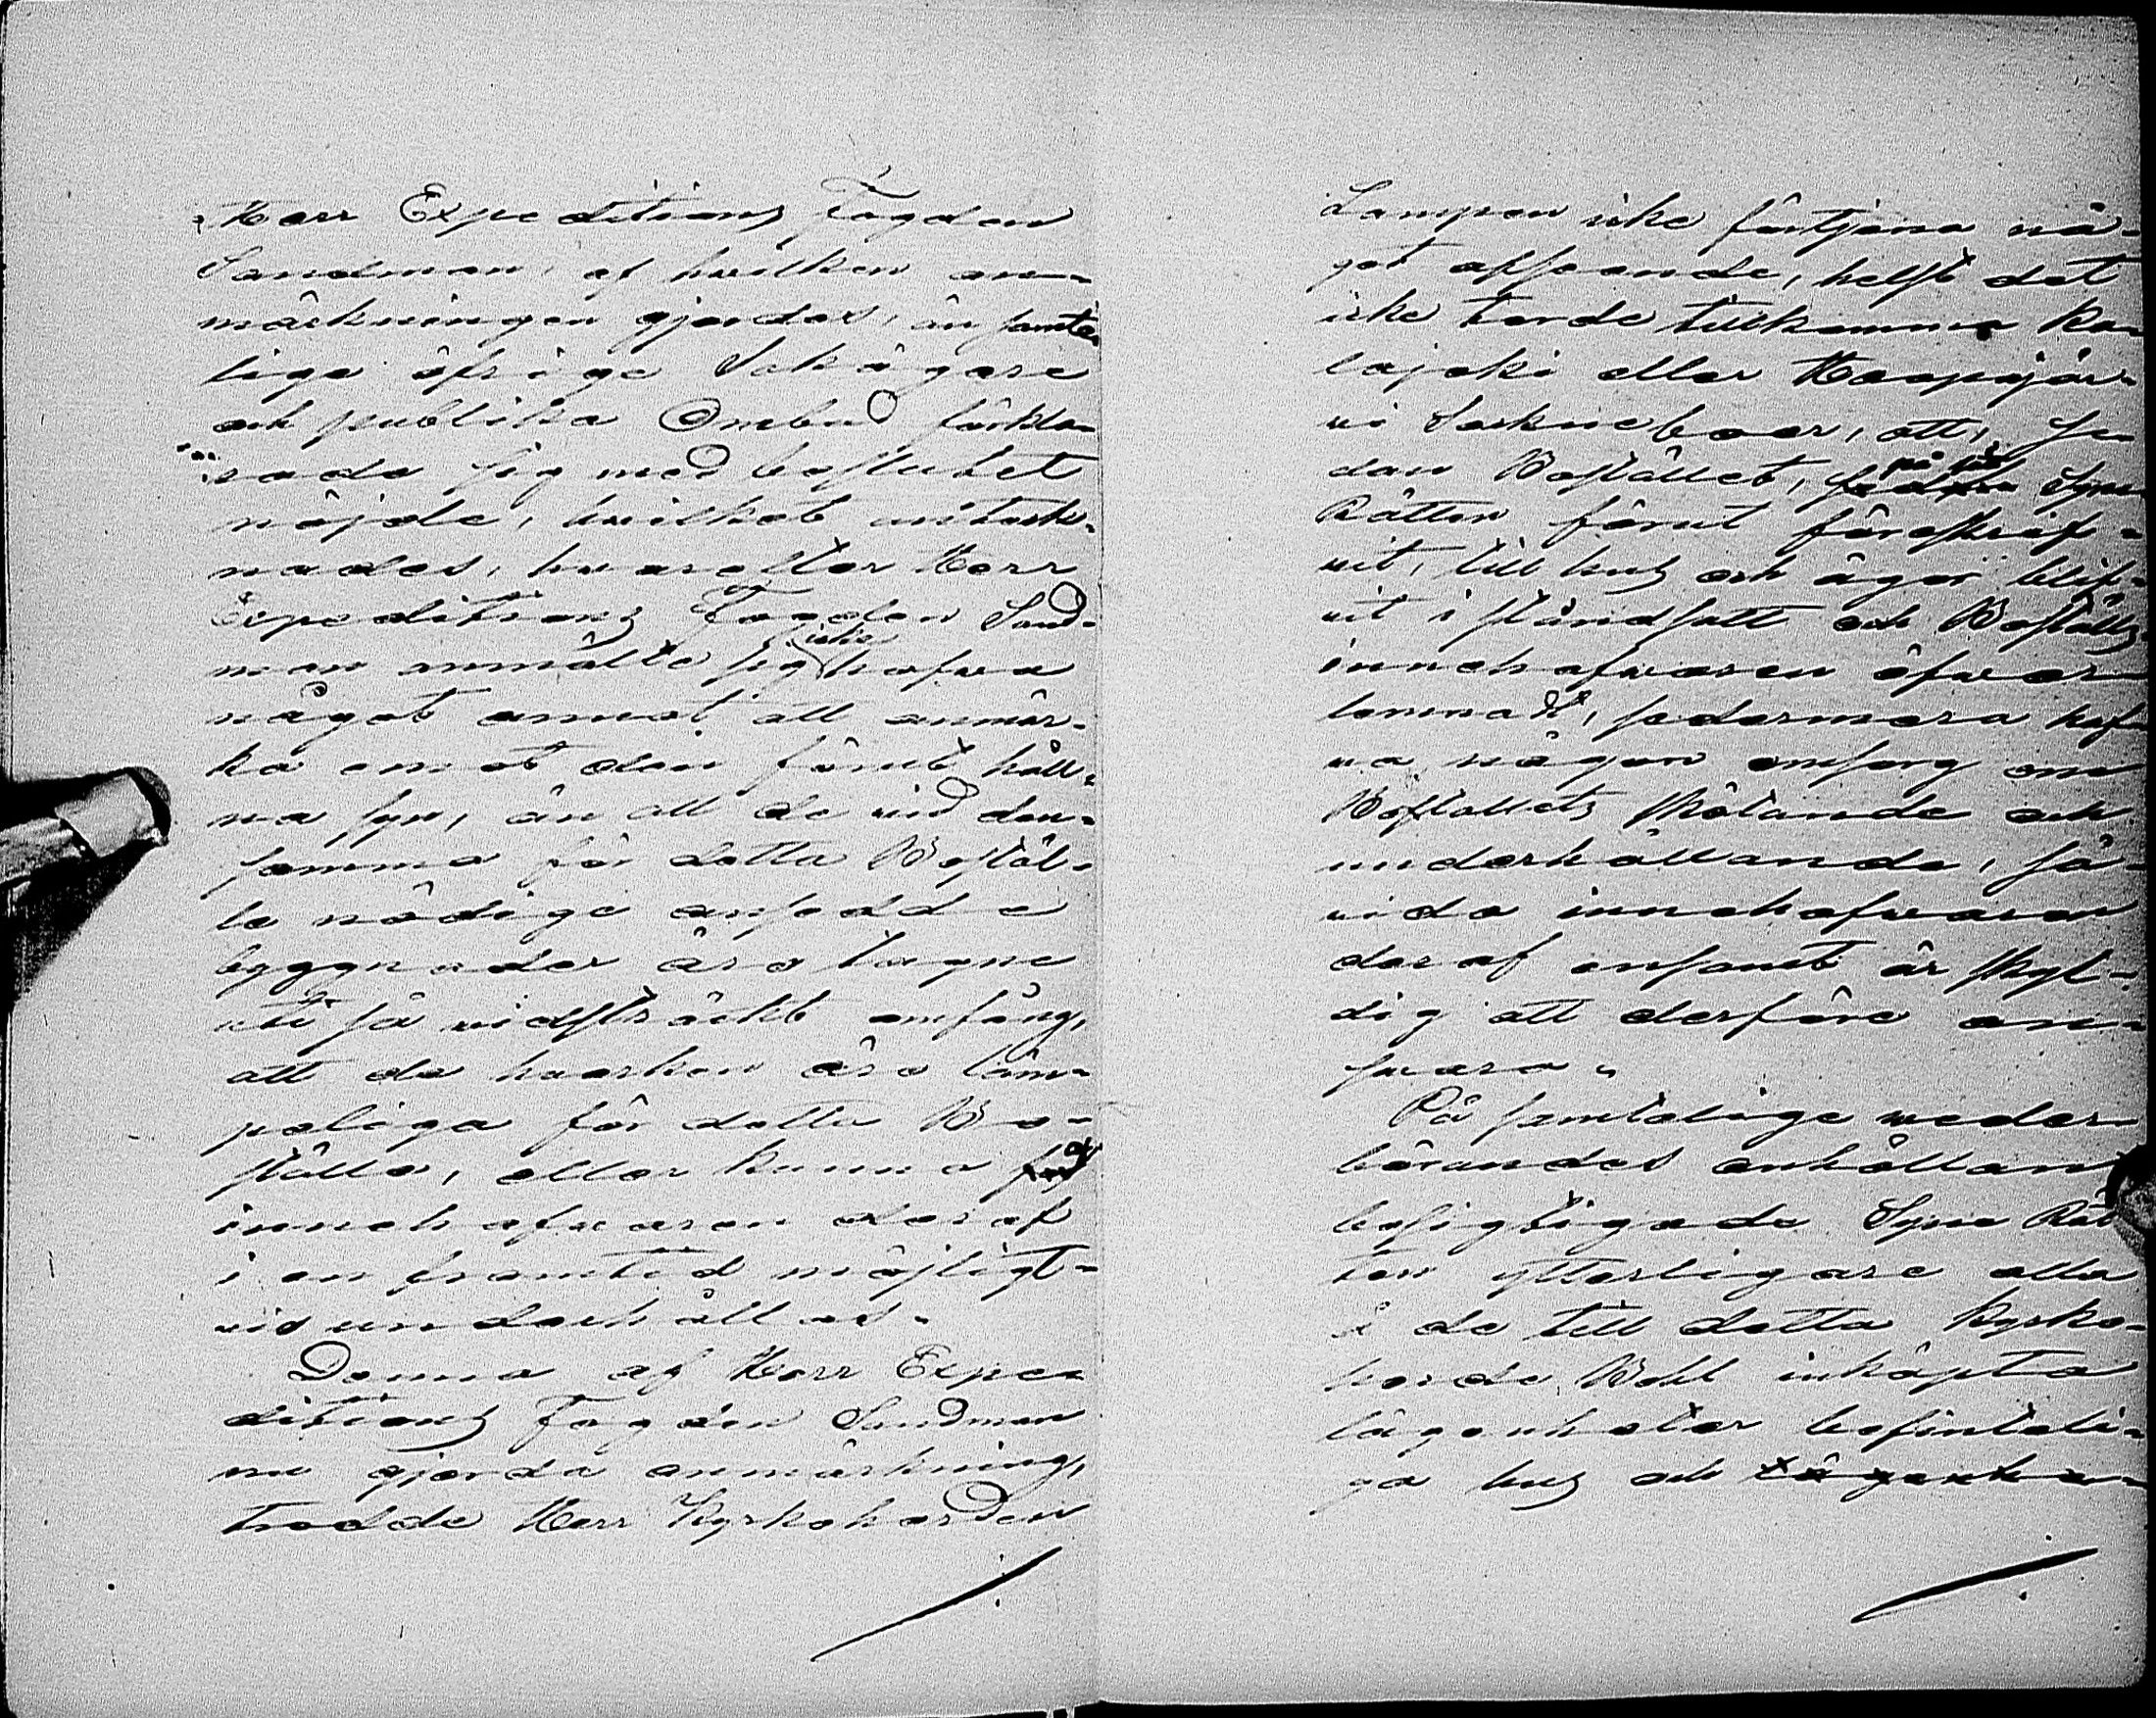 Herr Expeditions Fogden
Sandman, af hvilken an-
märkningen gjordes, än samte-
lige öfrige Sakägare
och publika Ombud förkla-
rade sig med beslutet
nöjde, hvilket anteck-
nades, hvarefter Herr
Expeditions Fogden Sand-
man anmälte sig icke hafva
något annat att anmär-
ka emot den förut håll-
na syn, än att de vid den-
samma för detta Boställ-
le nödige ansedde
byggnader äro tagne
uti så vidsträckt omfång,
att de hvarken äro läm-
peliga för detta Bo-
ställe, eller kunna af
innehafvaren deraf
i en framtid möjligt-
vis underhållas.
Denna af Herr Expe-
ditions Fogden Sandman
nu gjorda anmärkning,
trodde Herr Kyrkoherden
Lampen icke förtjena nå-
got afseende, helst det
icke torde tillkomma Ka-
lajoki eller Haapajär-
vi Sockneboer, att, se-
dan Bostället, på sätt Syne
Rätten förut föreskrif-
vit, till hus och ägor blif-
vit i ståndsatt och Boställs
innehafvaren öfver-
lemnadt, sedermera haf-
va någon omsorg om
Boställets skötande och
underhållande, så-
vida innehafvaren
deraf ensamt är skyl-
dig att derföre an-
svara.
På samtelige veder-
börandes anhållan
besigtigade Syne Rät-
ten ytterligare alla
å de till detta Kyrko-
herde Bohl inköpta
lägenheter befinteli-
ga hus och lägenhe-